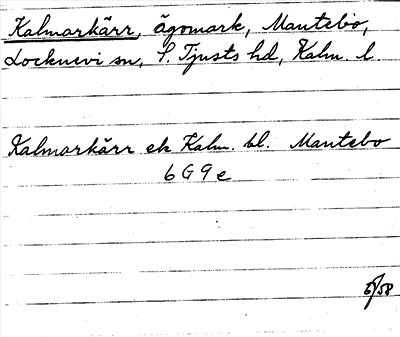 Kalmarkärr, ägomark, Mantebo,
Locknevi sn, S. Tjusts hd, Kalm. l.
Kalmarkärr ek Kalm. bl. Mantebo
6 G 9 e
/58